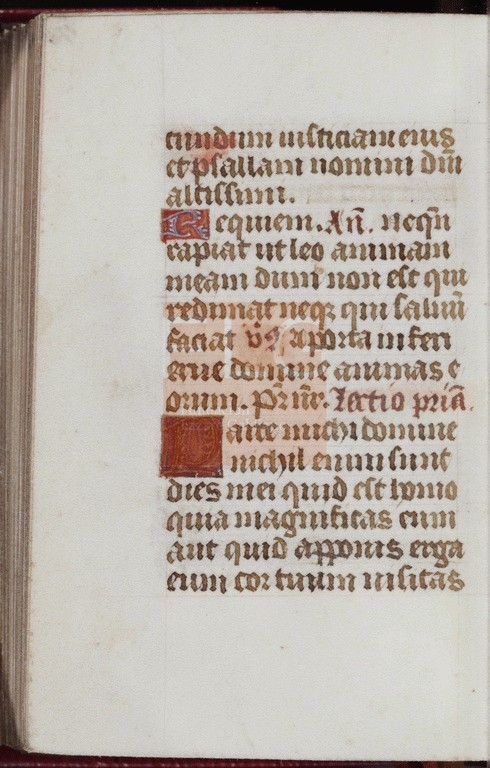 cundum iusticiam eius
et psallam nomini dm̄i
altissimi.
Requiem. An̄. nequn̄
rapiat ut leo animam
meam dum non est qui
redimat neqꝫ qui saluū
faciat v̄s. A porta inferi
erue domine animas e
orum. Pr̄ nr̄. Lectio pria̅.
Parce michi domine
nichil enim sunt
dies mei quid est homo
quia magnificas eum
aut quid apponis erga
eum cor tuum uisitas